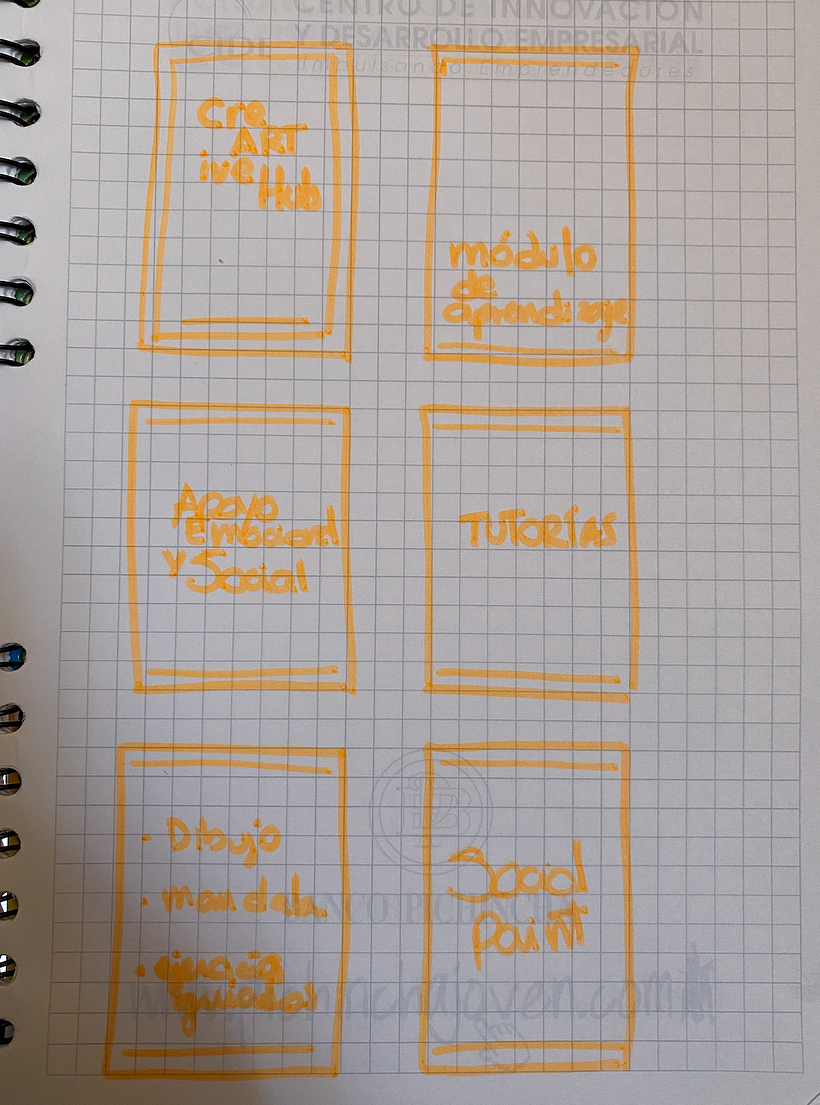 CENTRO DE INNOVACIÓN
CIDE Y DESARROLLO EMPRESARIAL
Impulsando Emprendedores
Cre
ART
ive
Hub
módulo
de
aprendizaje
Apoyo
Emocional
y Social
TUTORÍAS
· Dibujo
· mandala
guiados
Social
Paint
BANCO PICHINCHA